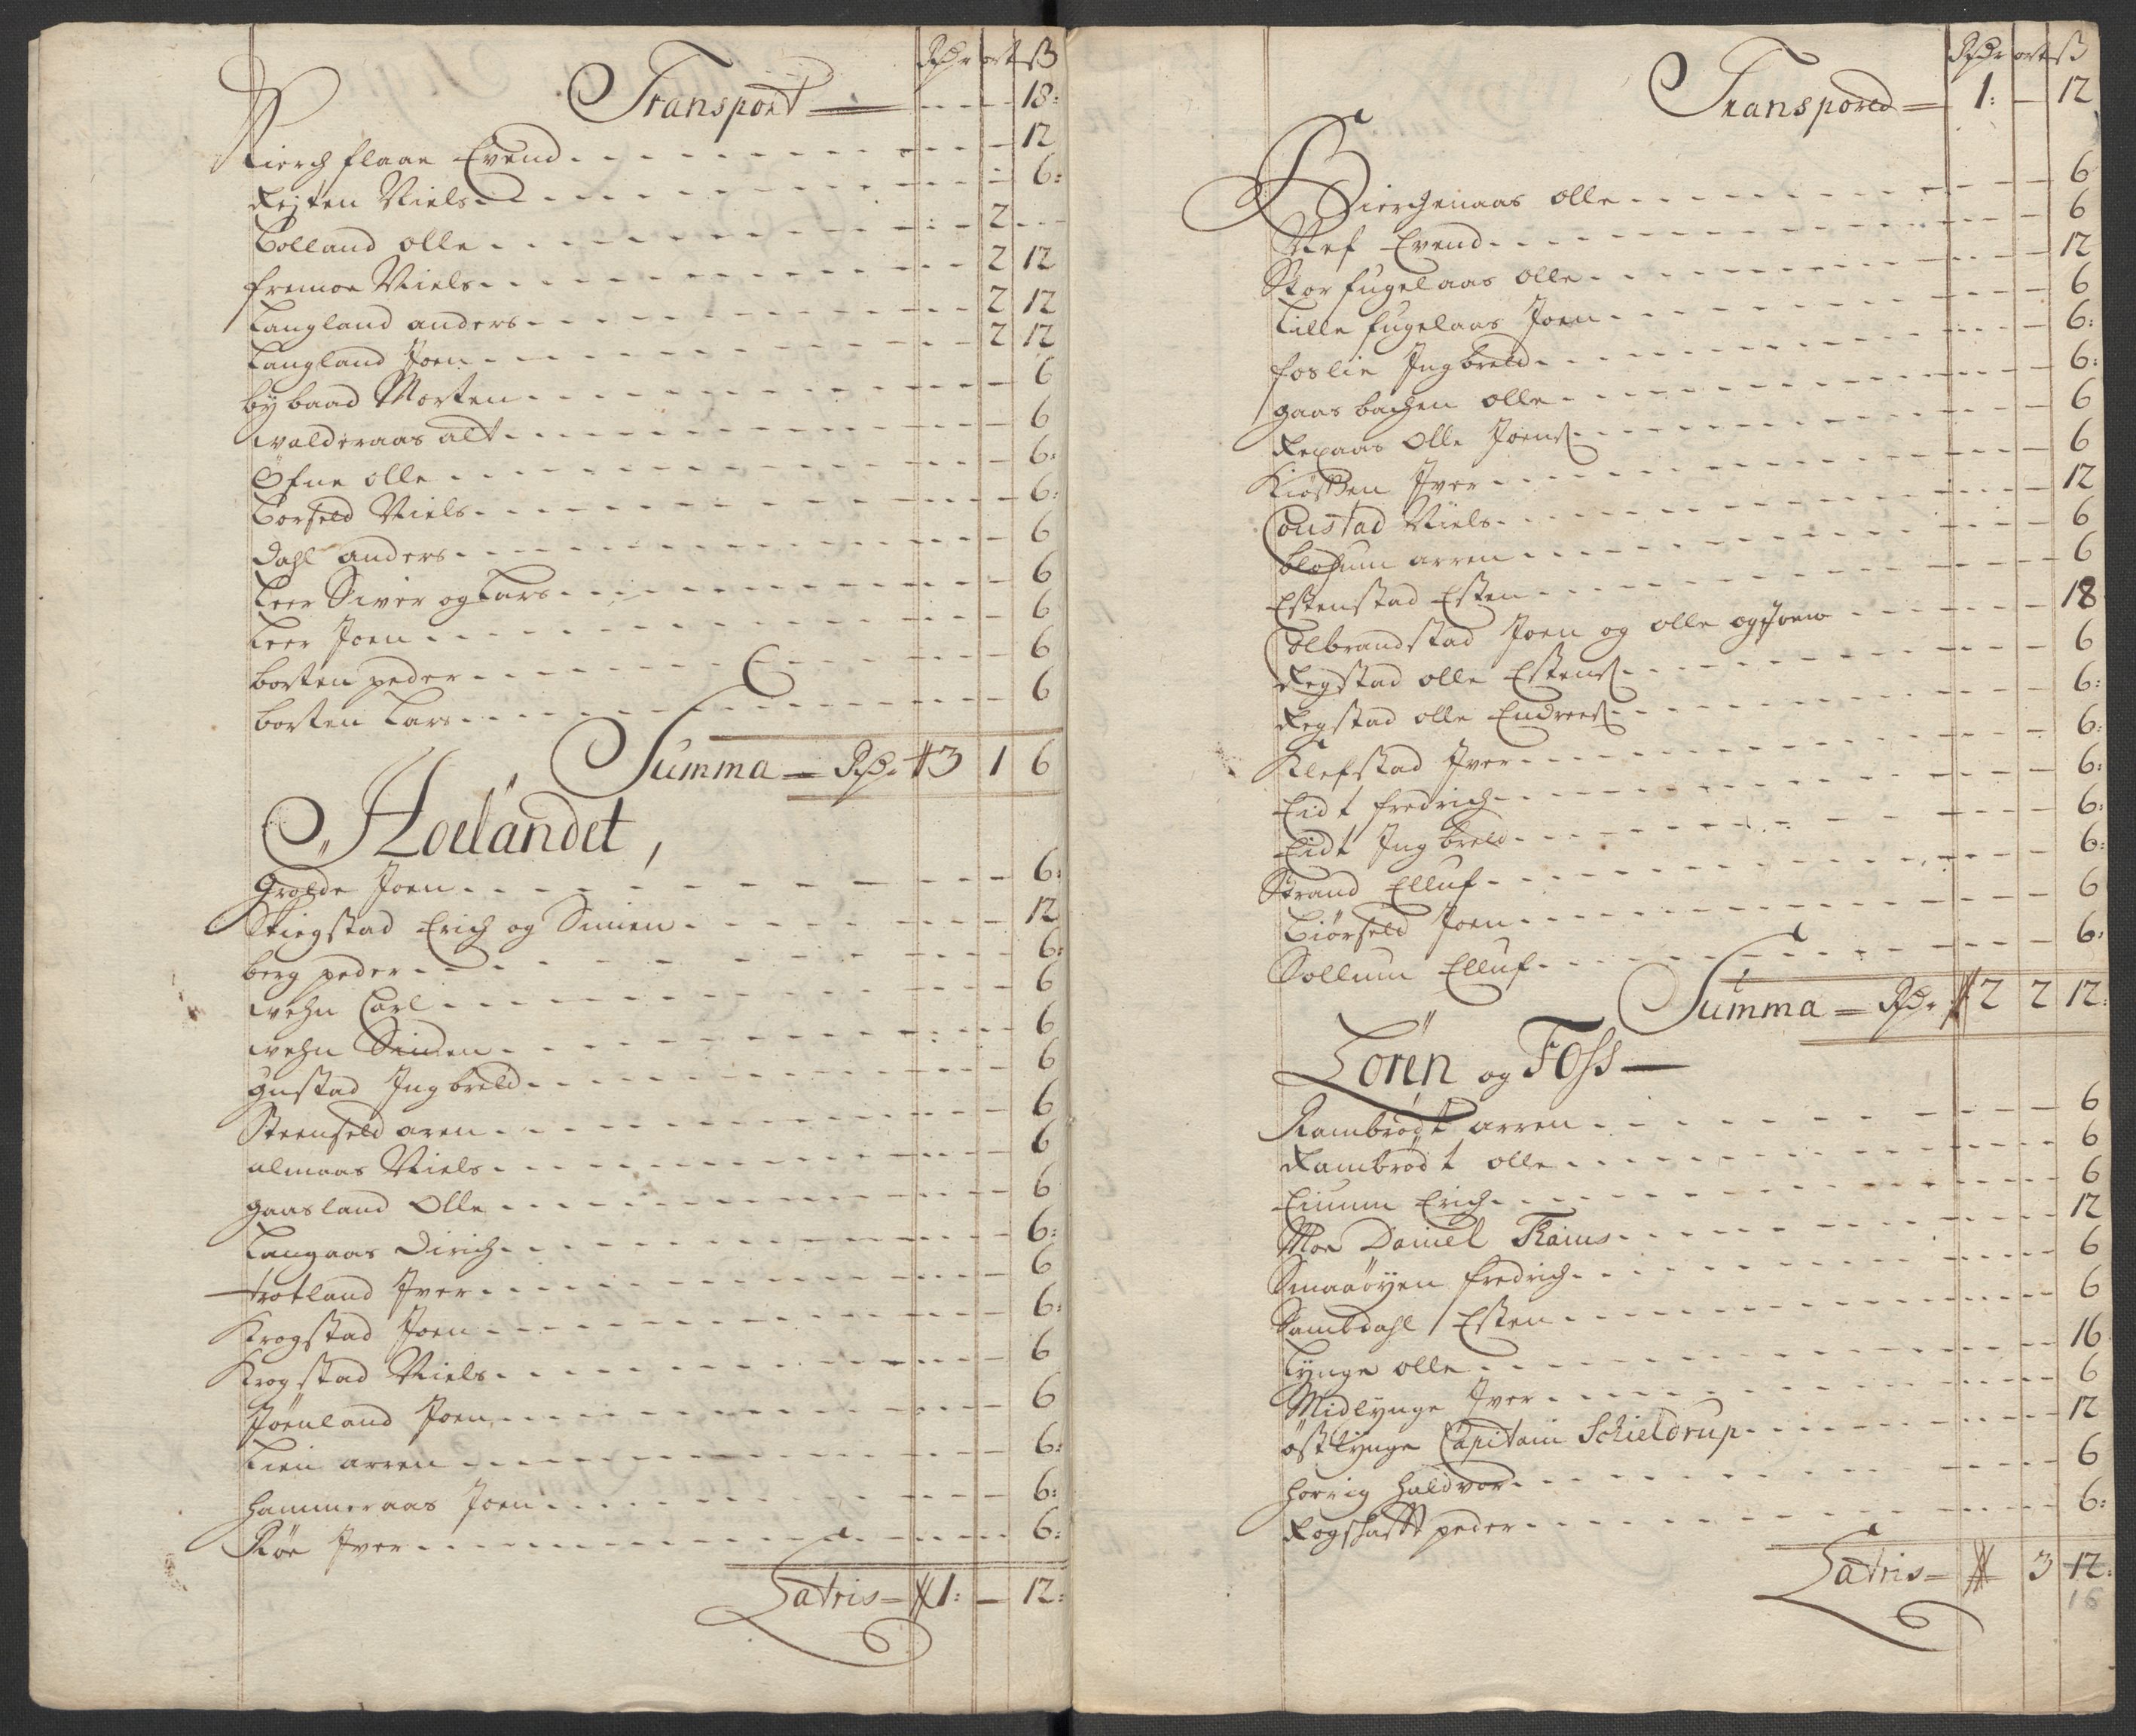 Rdr ort ß
Transport — 18:
Kierchflaae Evend 12
Rejten Niels 6:
Golland olle 2
fremoe Niels 2 12
Langland anders 2 12
Langland Joen 2 12
bÿbaad Morten 6
walderaas alt 6
Øfne olle 6:
Gorseld Niels 6:
Dahl anders 6
Leer Siver og Lars 6
Leer Joen 6
borten peder 6
borten Lars 6
Summa — Rdr 3 1 6
Hoelandet,
Joen 6:
Skiegstad Erich og Simen 12
berg peder 6:
wehn Carl 6
wehn Simen 6
gustad Ingbreld 6
Steenseld aren 6
almaas Niels 6
gaasland Olle 6
Langaas Dirich 6:
trotland Iver 6
Krogstad Joen 6:
Krogstad Niels 6
Joenland Joen 6
Lien arren 6:
hammeraas Joen 6:
Røe Iver 6:
Latris = 1: — 12:
Rdr ort ß
Transpored = 1: — 12
Bierchenaas olle 6
Ref Evend 6
Stor fugelaas Olle 12
Lille fugelaas Joen 6
foslie Ingbreld 6:
gaasbachen olle 6:
Repaas Olle Joens 6
Kiøsßen Iver 6
Coustad Niels 12
blohum arren 6
Estenstad Esten 6
Colbrandstad Joen og olle og Joen 18
Regstad olle Estens 6
Regstad olle Endrees 6:
Klefstad Iver 6:
Eidt fredrich 6:
Eidt Ingbreld 6:
Strand Elluf 6:
Giørseld Joen 6
Sollum Elluf 6:
Summa = Rdr 2 2 12:
Loren og Foss —
Rambrødt arren 6
Rambrødt olle 6
Eiumm Erich 6
Moe Daniel Thams 12
Smaaøyen fredrich 6
Sambdahl Esten 6
Lÿnge olle 16
Midlÿnge Iver 6
østlÿnge Capitain Schieldrup 12
horrig haldvor 6
Rogshatt peder 6:
Latris = 3 12:
16